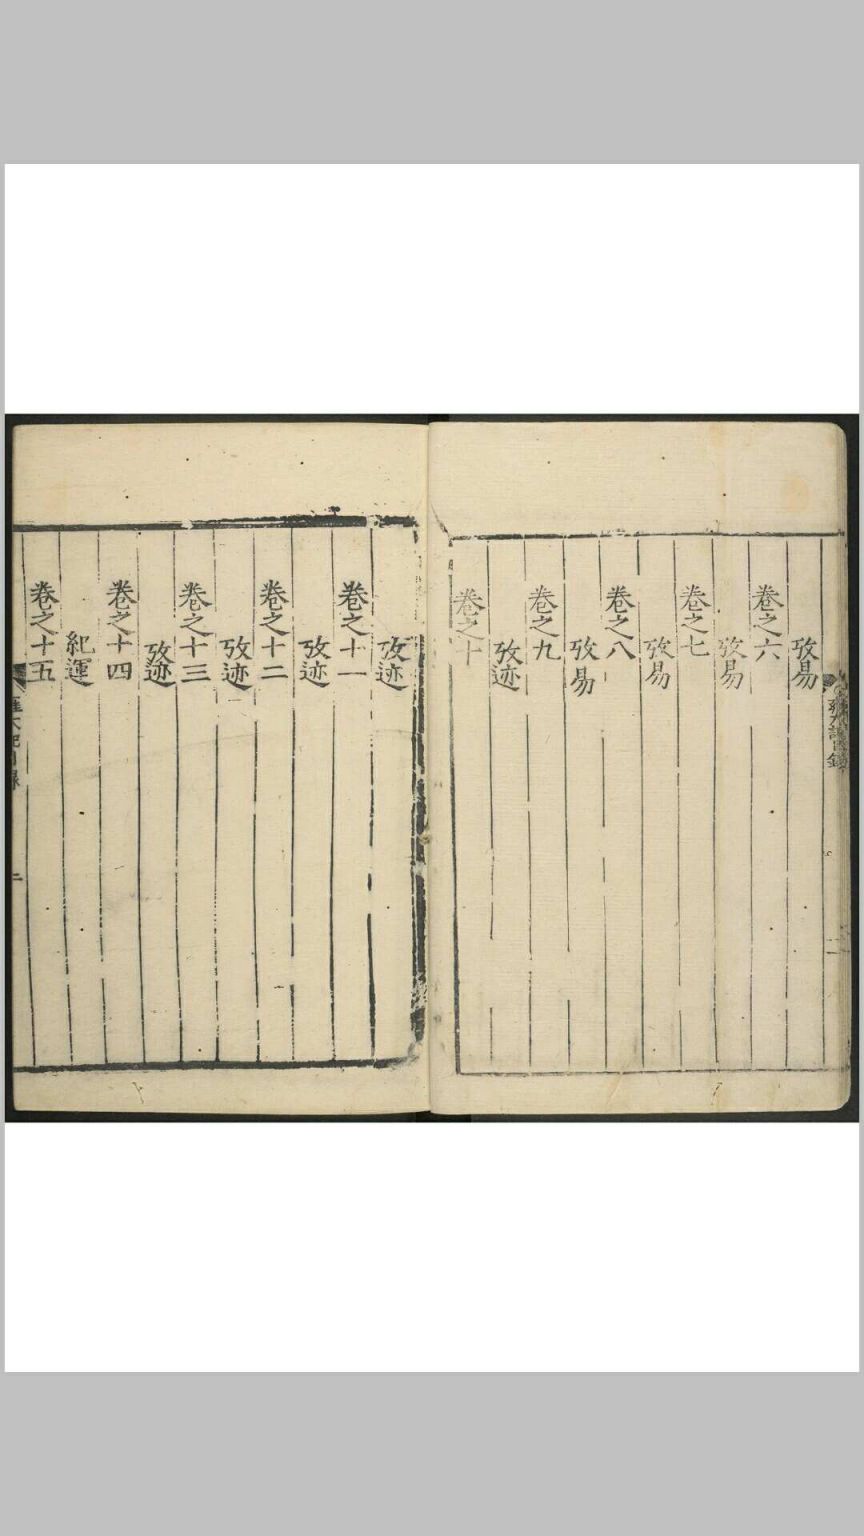 攷易
卷之六
攷易
卷之七
攷易
卷之八
攷易
卷之九
攷迹
卷之十
攷迹
卷之十一
攷迹
卷之十二
攷迹
卷之十三
攷迹
卷之十四
紀運
卷之十五